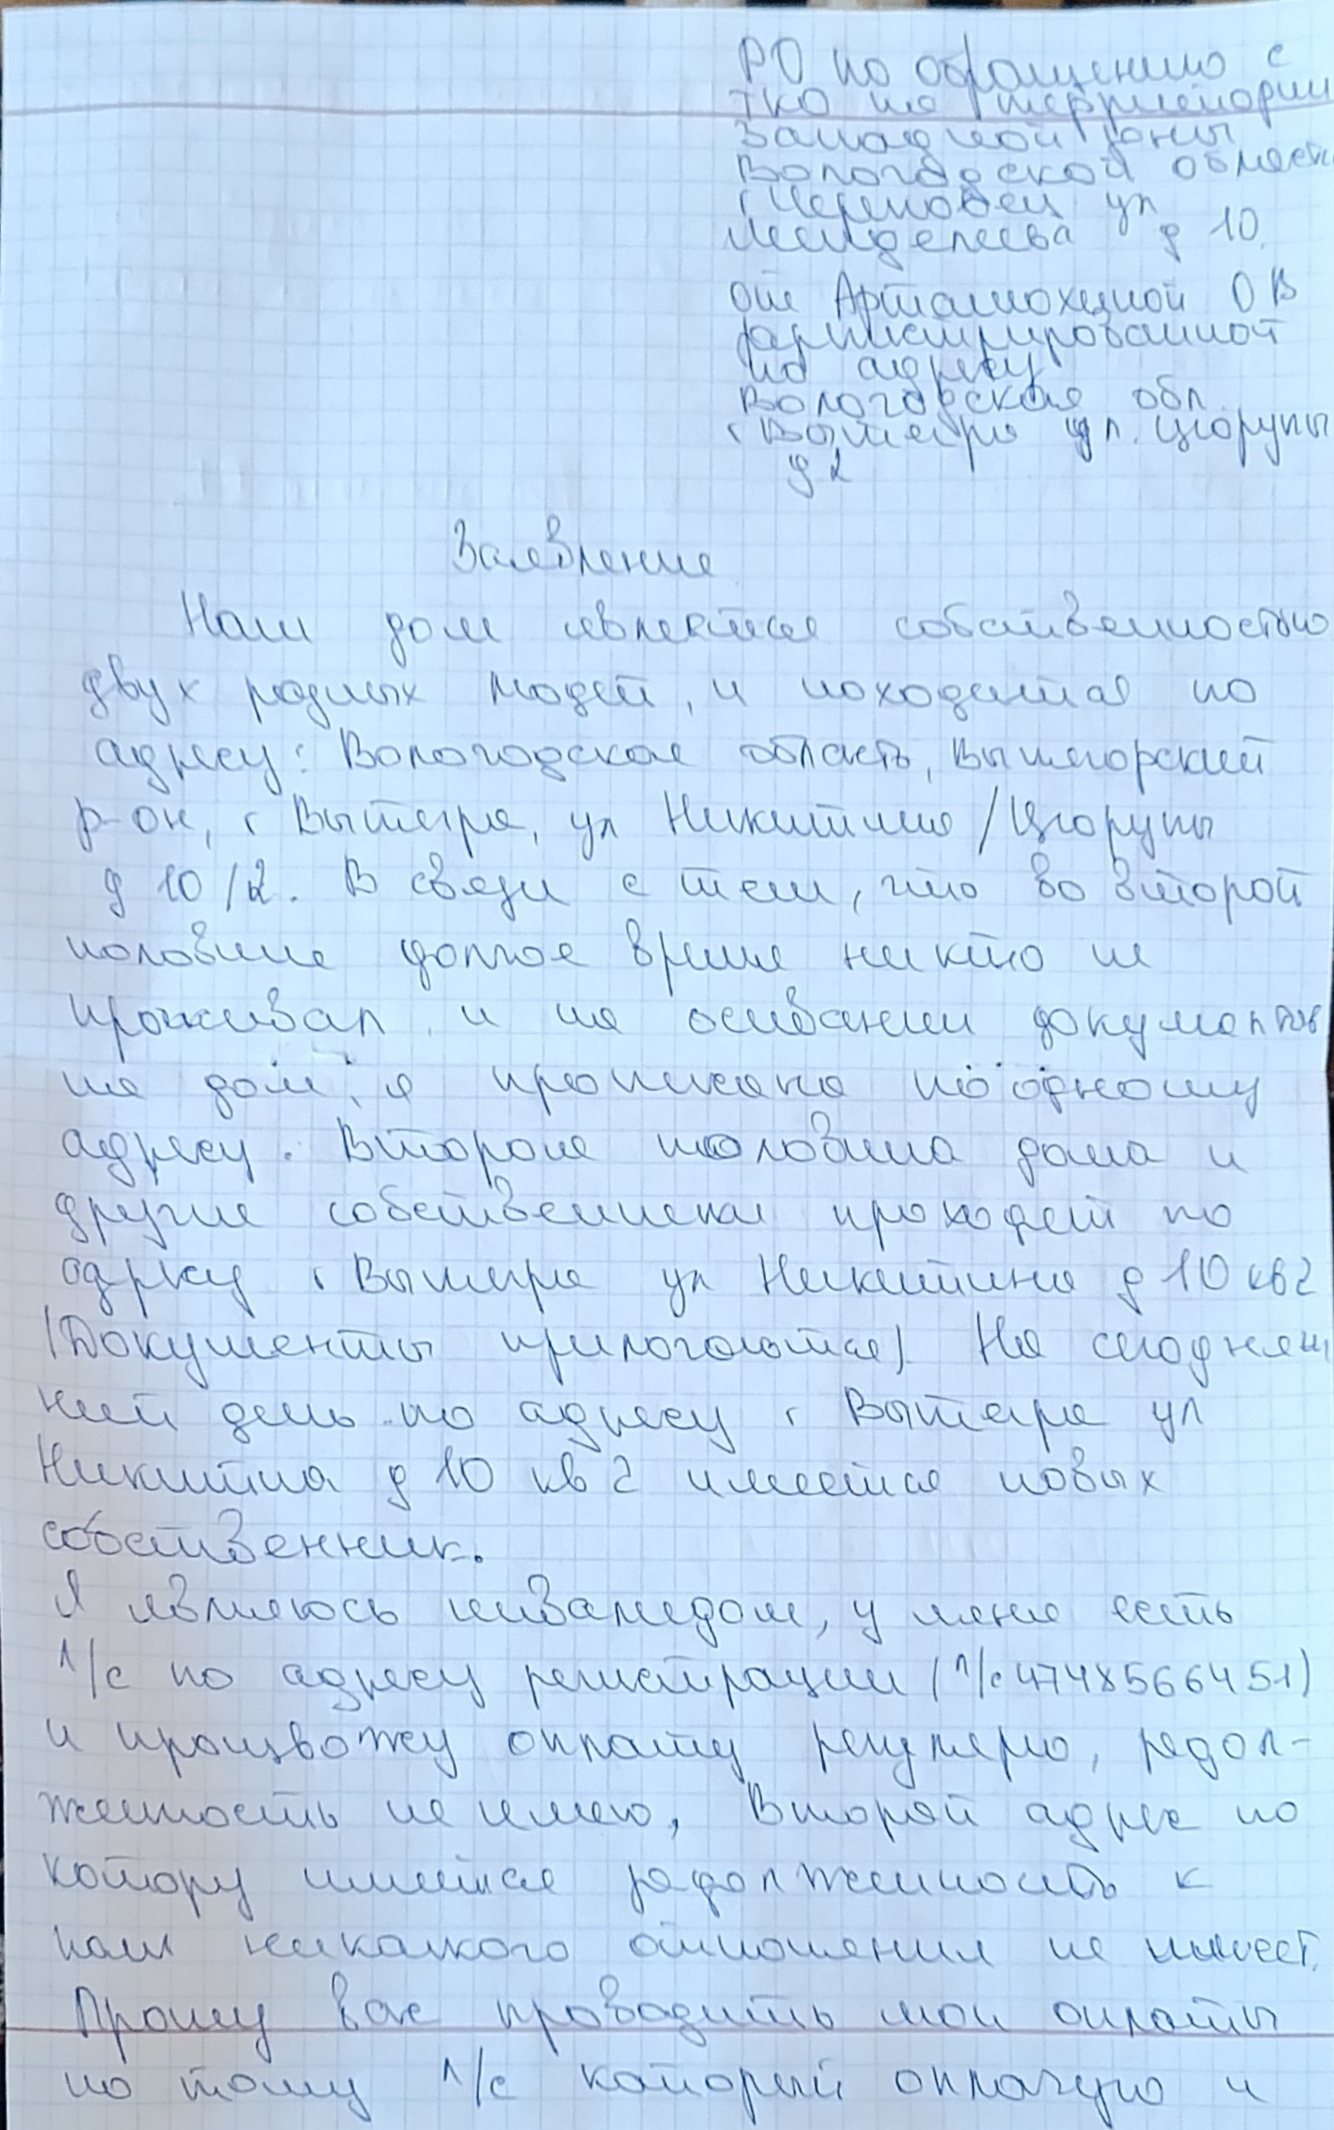 РО по обращению с
ТКО на территории
Западной зоны
Вологодской области
г Череповец ул
Менделеева д 10.
от Артамохиной О В
зарегистрированной
по адресу
Вологодская обл.
г Вытегра ул. Цюрупы
д 2
Заявление
Наш дом является собственностью
двух разных людей, и находится по
адресу: Вологодская область, Вытегорский
р-он, г Вытегра, ул Никитина/Цюрупы
д 10/2. В связи с тем, что во второй
половине долгое время никто не
проживал и на основании документов
на дом, я прописана по одному
адресу. Вторая половина дома и
другие собственники проходят по
адресу г Вытегра ул Никитина д 10 кв 2
(Документы прилагаются). На сегодняш
ний день по адресу г Вытегра ул
Никитина д 10 кв 2 имеется новых
собственник.
Я являюсь инвалидом, у меня есть
л/с по адресу регистрации (л/с 4748566451)
и произвожу оплату регулярно, задол-
женность не имею, Второй адрес по
котору имеется задолженность к
нам никакого отношения не имеет.
Прошу вас проводить мои оплаты
по тому л/с который оплачую и